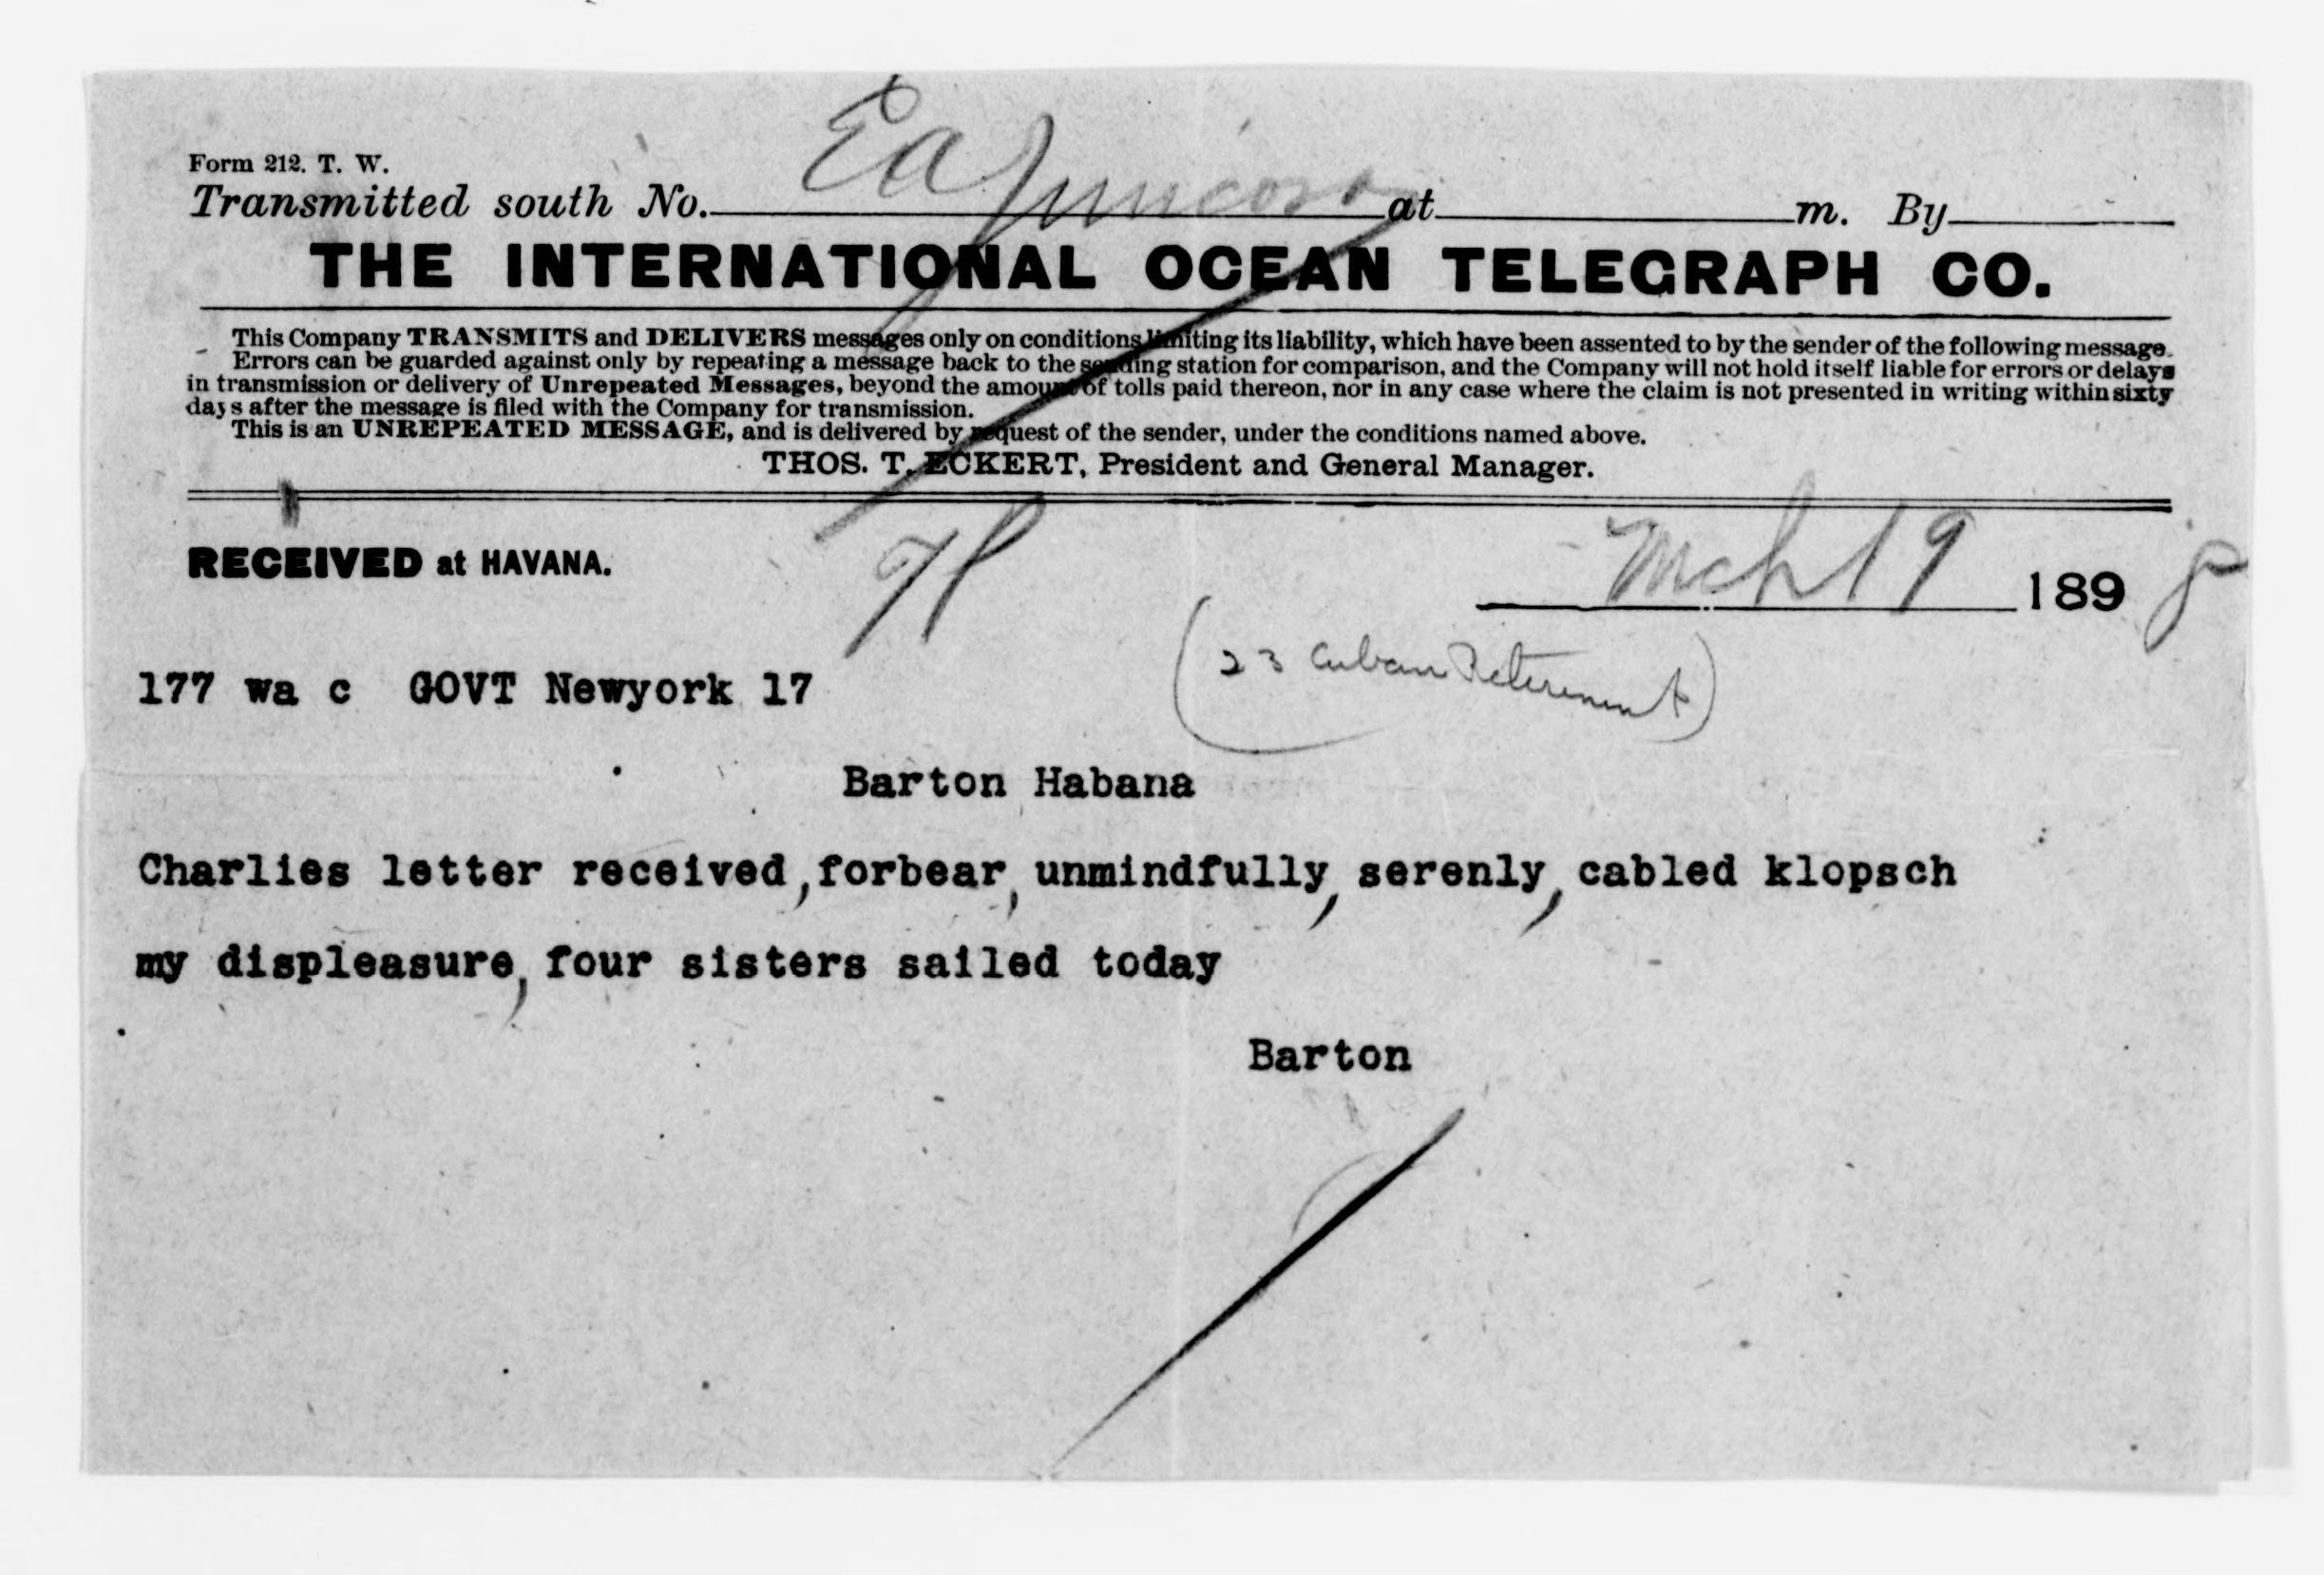 Form 212. T. W.
Transmitted south No. at m. By
THE INTERNATIONAL OCEAN TELEGRAPH CO.
This Company TRANSMITS and DELIVERS messages only on conditions limiting its liability, which have been assented to by the sender of the following message.
Errors can be guarded against only by repeating a message back to the sending station for comparison, and the Company will not hold itself liable for errors or delays
in transmission or delivery of Unrepeated Messages, beyond the amount of tolls paid thereon, nor in any case where the claim is not presented in writing within sixty
days after the message is filed with the Company for transmission.
This is an UNREPEATED MESSAGE, and is delivered by request of the sender, under the conditions named above.
THOS. T. ECKERT, President and General Manager.
RECEIVED at HAVANA. Mch 19 1898
177 wa c GOVT Newyork 17
(23 Cuban Retirement)
Barton Habana
Charlies letter received, forbear, unmindfully, serenly, cabled klopsch
my displeasure, four sisters sailed today
Barton